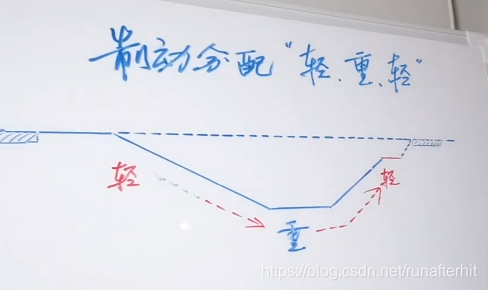 制动分配"轻、重、轻"
轻
轻
重
https://blog.csdn.net/runafterhit